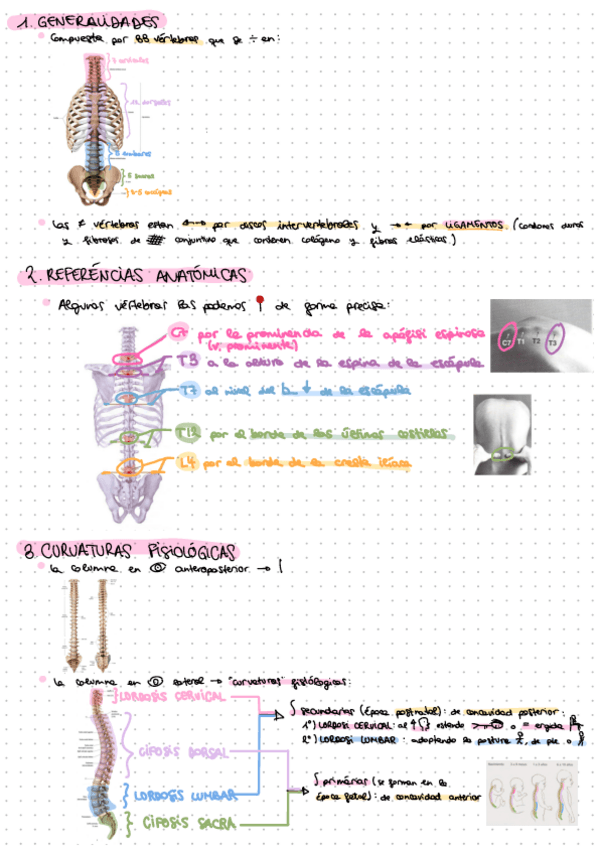 1. GENERALIDADES
Compuesta por 33 vértebras que se ÷ en:
7 cervicales
12 dorsales
5 lumbares
5 sacras
3-5 coccígeas
Las ≠ vértebras estan ⟷ por discos intervertebrales y →← por LIGAMENTOS (cordones duros
y fibrosos de conjuntivo que contienen colágeno y fibras elásticas)
2. REFERÉNCIAS ANATÓMICAS
Algunas vértebras las podemos de forma precisa:
C7 por la prominencia de la apófisi espinosa
(v. prominente)
T3 a la altura de la espina de la escápula
T7 al nivel del b. ↓ de la escápula
T12 por el borde de las últimas costillas
L4 por el borde de la cresta ilíaca
C7 T1 T2 T3
3. CURVATURAS FISIOLÓGICAS
la columna en anteroposterior → |
la columna en lateral → "curvaturas" fisiológicas:
LORDOSIS CERVICAL
CIFOSIS DORSAL
LORDOSIS LUMBAR
CIFOSIS SACRA
secundarias (época postnatal): de concavidad posterior:
1º) LORDOSI CERVICAL: al estando o = erguida
2º) LORDOSI LUMBAR: adoptando la postura de pie o
primárias (se forman en la
época fetal): de concavidad anterior